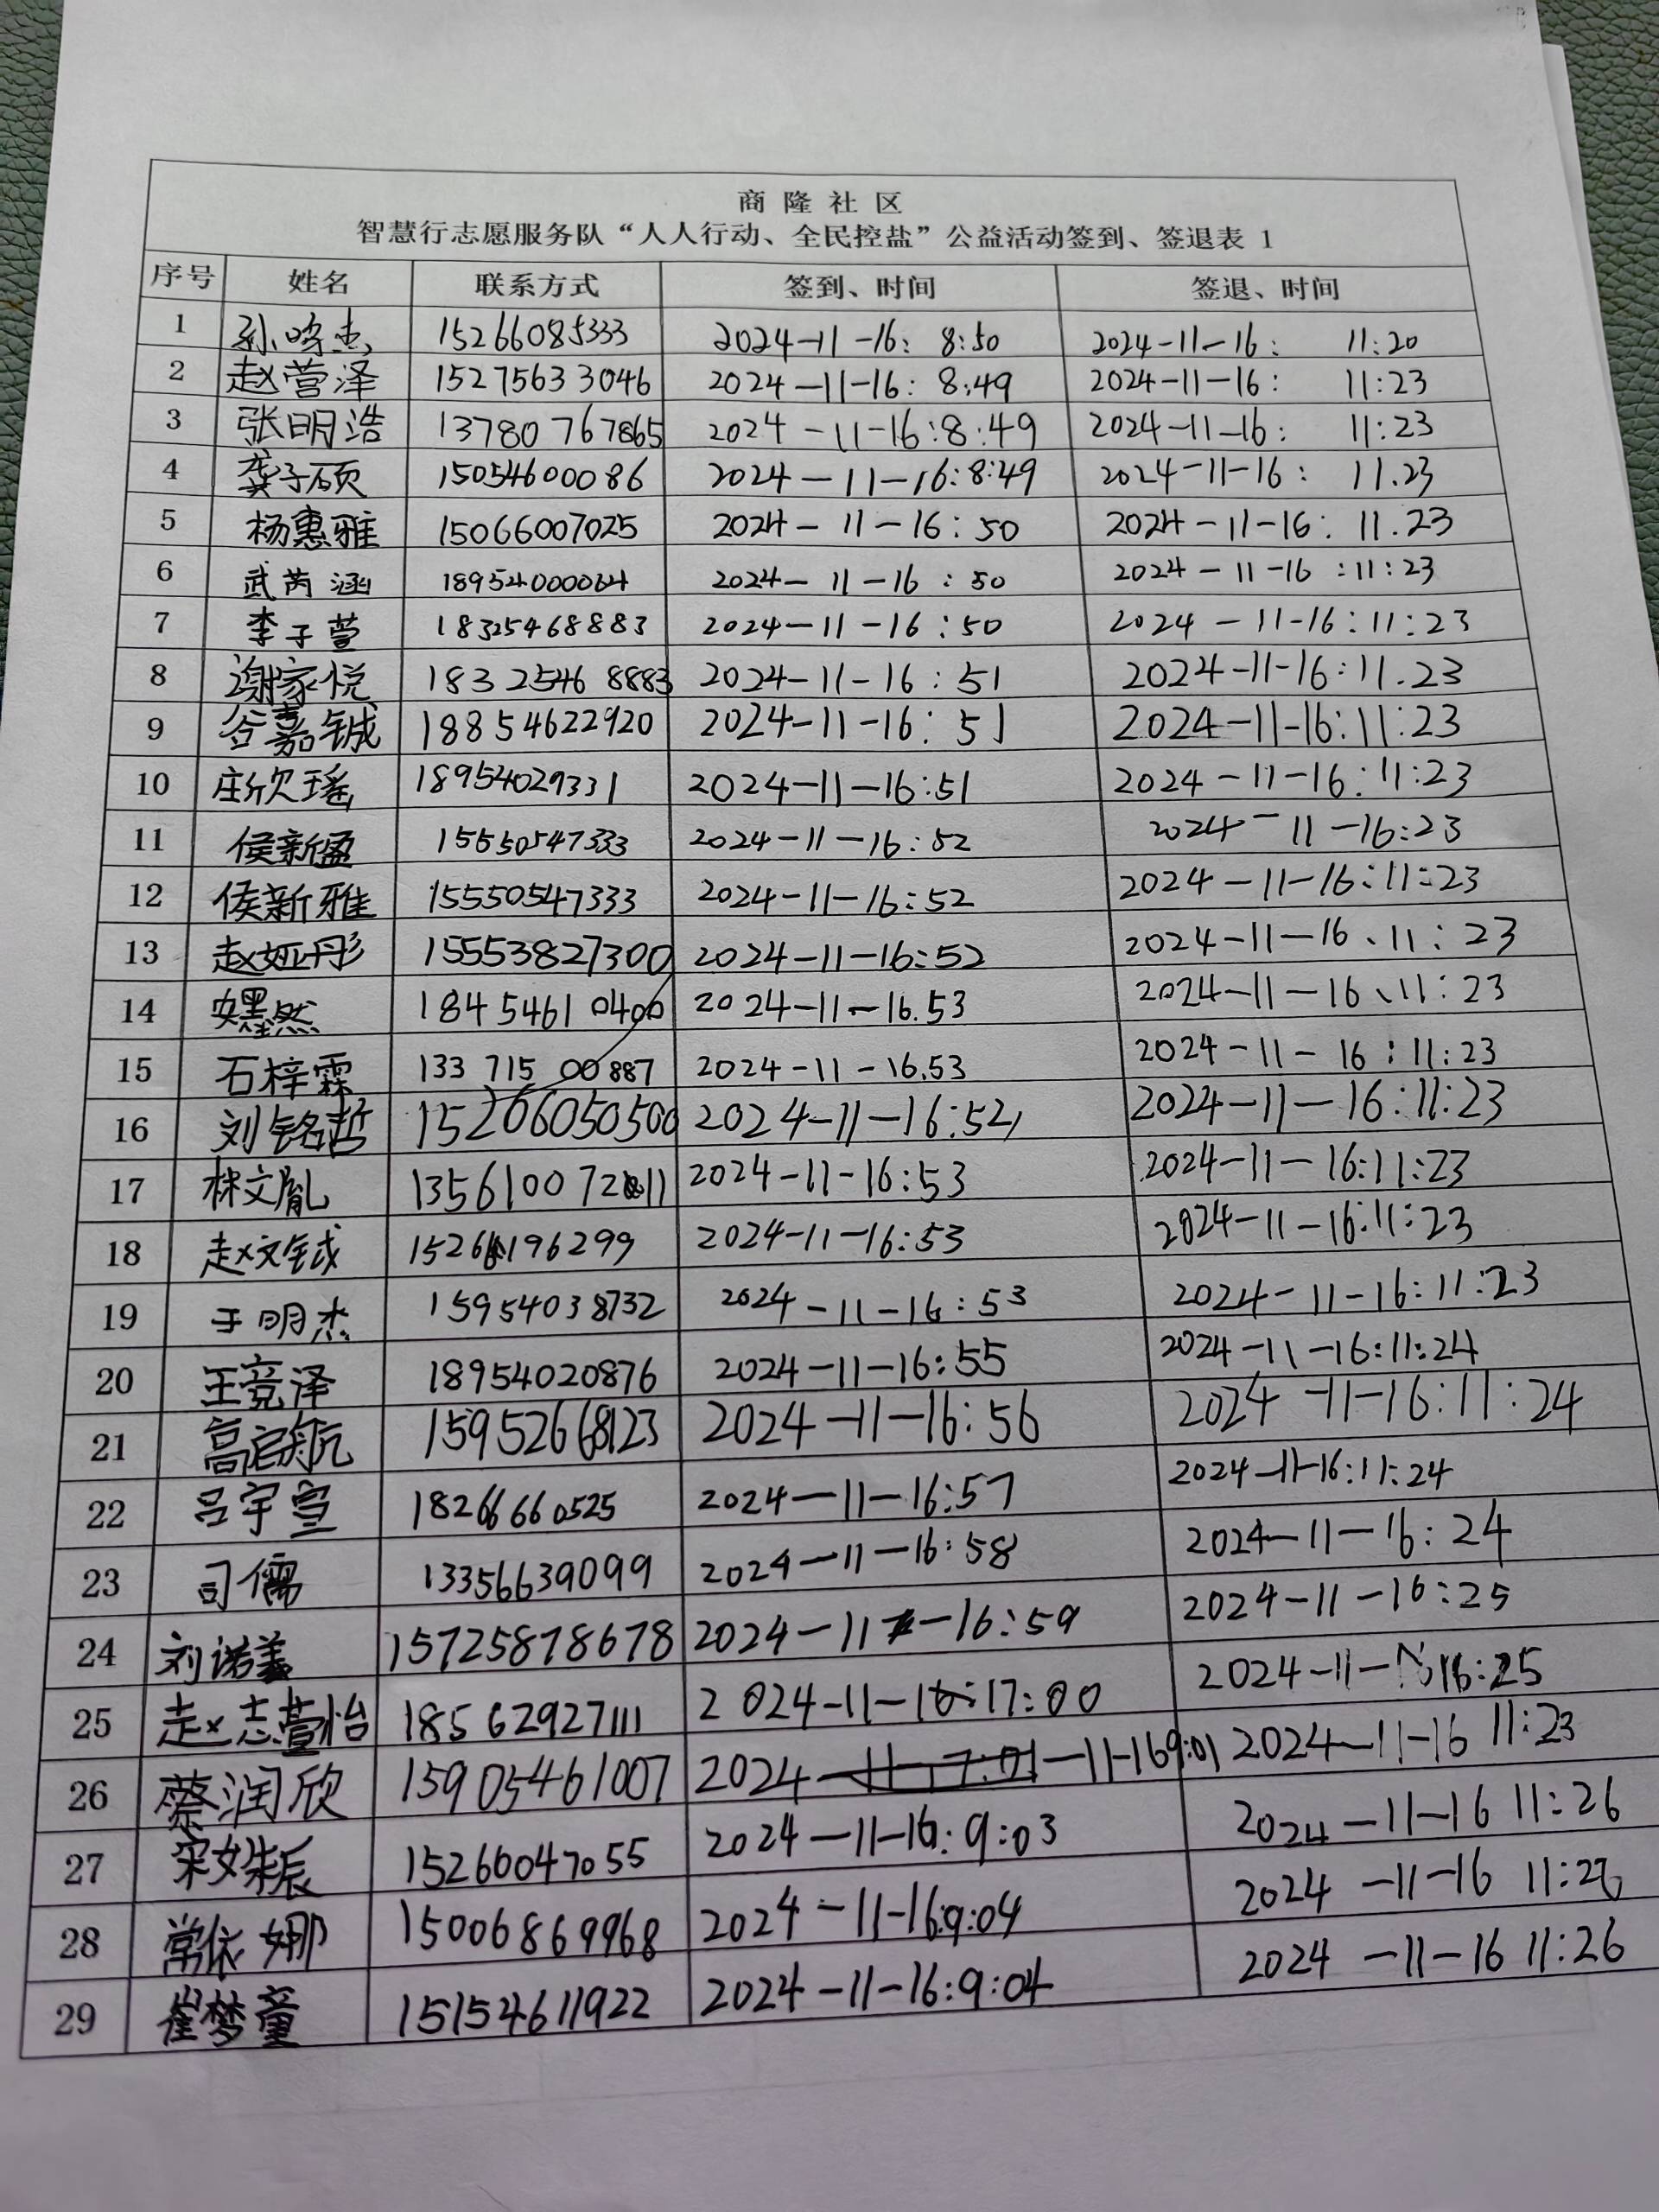 商隆社区
智慧行志愿服务队“人人行动、全民控盐”公益活动签到、签退表 1
序号 姓名 联系方式 签到、时间 签退、时间
1 孙 15266085333 2024-11-16: 8:50 2024-11-16: 11:20
2 赵萱泽 15275633046 2024-11-16: 8:49 2024-11-16: 11:23
3 张明浩 13780767865 2024-11-16:8:49 2024-11-16: 11:23
4 龚子硕 15054600086 2024-11-16:8:49 2024-11-16: 11.23
5 杨惠雅 15066007025 2024-11-16:50 2024-11-16: 11.23
6 武芮涵 18954000064 2024-11-16:50 2024-11-16:11:23
7 李子萱 18325468883 2024-11-16:50 2024-11-16:11:23
8 谢家悦 18325468883 2024-11-16:51 2024-11-16:11.23
9 谷嘉铖 18854622920 2024-11-16:51 2024-11-16:11:23
10 庄欣瑶 18954029331 2024-11-16:51 2024-11-16:11:23
11 侯新盈 15550547333 2024-11-16:52 2024-11-16:23
12 侯新雅 15550547333 2024-11-16:52 2024-11-16:11:23
13 赵娅彤 15553827300 2024-11-16:52 2024-11-16、11:23
14 安墨然 18454610400 2024-11-16.53 2024-11-16、11:23
15 石梓霖 13371500887 2024-11-16.53 2024-11-16:11:23
16 刘铭哲 15266050500 2024-11-16:52, 2024-11-16:11:23
17 林文胤 2024-11-16:53 2024-11-16:11:23
18 赵文钺 2024-11-16:53 2024-11-16:11:23
19 于明杰 15954038732 2024-11-16:53 2024-11-16:11:23
20 王竞泽 18954020876 2024-11-16:55 2024-11-16:11:24
21 高启航 15952668123 2024-11-16:56 2024-11-16:11:24
22 吕宇宣 18266660525 2024-11-16:57 2024-11-16:11:24
23 司儒 13356639099 2024-11-16:58 2024-11-16:24
24 刘诺美 15725878678 2024-11-16:59 2024-11-16:25
25 赵志萱怡 18562927111 2024-11-16:17:00 2024-11-16:25
26 蔡润欣 15905461007 2024-11-16 9:01 2024-11-16 11:23
27 宋姝辰 15266047055 2024-11-16:9:03 2024-11-16 11:26
28 常依娜 15006869968 2024-11-16:9:04 2024-11-16 11:26
29 崔梦童 15154611922 2024-11-16:9:04 2024-11-16 11:26